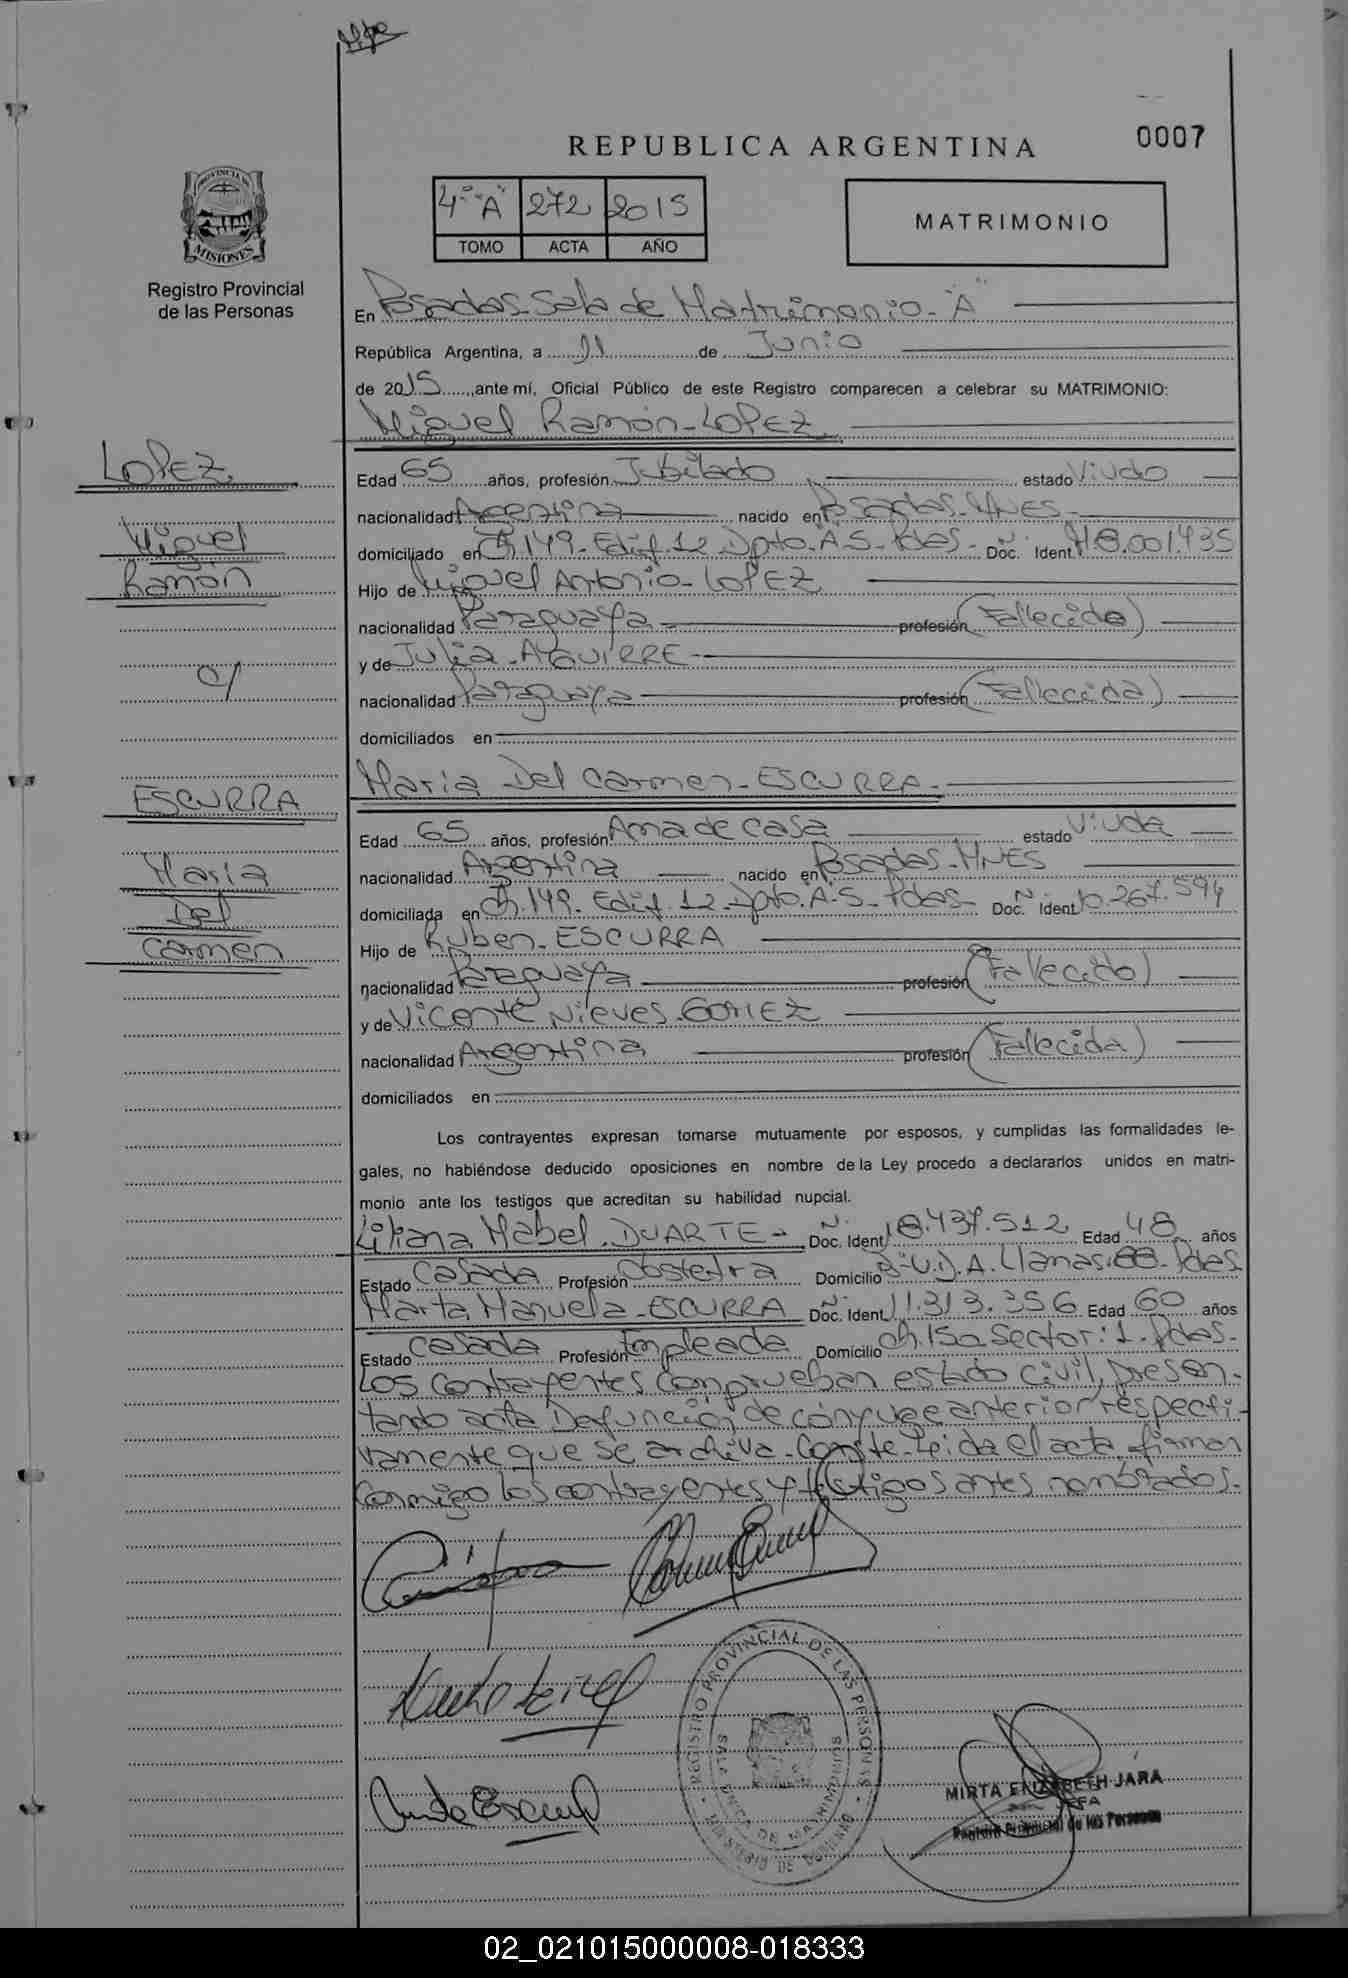 0007
REPUBLICA ARGENTINA
PROVINCIA DE
MISIONES
Registro Provincial
de las Personas
4º "A" 272 2015
TOMO ACTA AÑO
MATRIMONIO
En Posadas-Sala de Matrimonio-"A"
República Argentina, a 11 de Junio
de 2015, ante mí, Oficial Público de este Registro comparecen a celebrar su MATRIMONIO:
Miguel Ramón-LOPEZ
LOPEZ
Miguel
Ramón
c/
ESCURRA
Maria
Del
Carmen
Edad 65 años, profesión Jubilado estado Viudo
nacionalidad Argentina nacido en Posadas-MNES-
domiciliado en Ch.149-Edif.12-Dpto.A.S-Pdas- Doc. Ident. Nº 8.001.435
Hijo de Miguel Antonio-LOPEZ
nacionalidad Paraguaya profesión (Fallecido)
y de Julia-AGUIRRE-
nacionalidad Paraguaya profesión (Fallecida)
domiciliados en
Maria Del Carmen-ESCURRA-
Edad 65 años, profesión Ama de casa estado Viuda
nacionalidad Argentina nacido en Posadas-MNES
domiciliada en Ch.149-Edif.12-Dpto.A.S-Pdas- Doc. Ident. Nº 10.267.594
Hijo de Ruben-ESCURRA
nacionalidad Paraguaya profesión (Fallecido)
y de Vicente Nieves-GOMEZ
nacionalidad Argentina profesión (Fallecida)
domiciliados en
Los contrayentes expresan tomarse mutuamente por esposos, y cumplidas las formalidades le-
gales, no habiéndose deducido oposiciones en nombre de la Ley procedo a declararlos unidos en matri-
monio ante los testigos que acreditan su habilidad nupcial.
Liliana Mabel-DUARTE- Doc. Ident. Nº 18.437.512 Edad 48 años
Estado Casada Profesión Obstetra Domicilio A. Llamas Pdas
Marta Manuela-ESCURRA Doc. Ident. Nº 11.313.356 Edad 60 años
Estado Casada Profesión Empleada Domicilio Ch.150 Sector:1-Pdas-
Los contrayentes comprueban estado civil, presen-
tando acta Defunción, de cónyuge anterior respecti-
vamente que se archiva-Conste-Leida el acta, firman
conmigo los contrayentes y testigos antes nombrados-
REGISTRO PROVINCIAL DE LAS PERSONAS
SALA UNICA DE MATRIMONIOS
MINISTERIO DE GOBIERNO
MIRTA ELIZABETH JARA
JEFA
Registro Provincial de las Personas
02_021015000008-018333